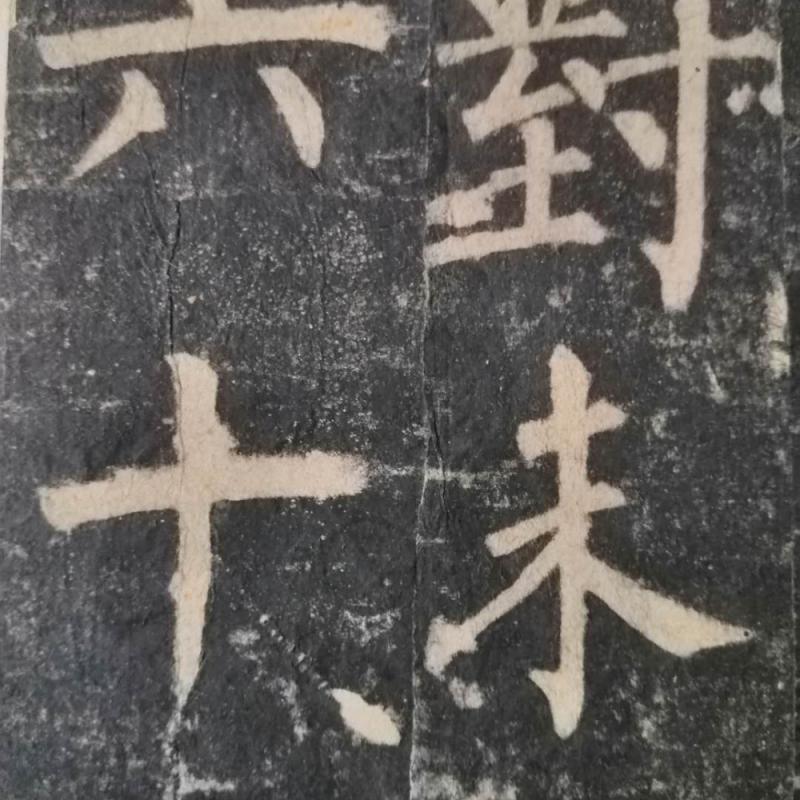 對未
六十